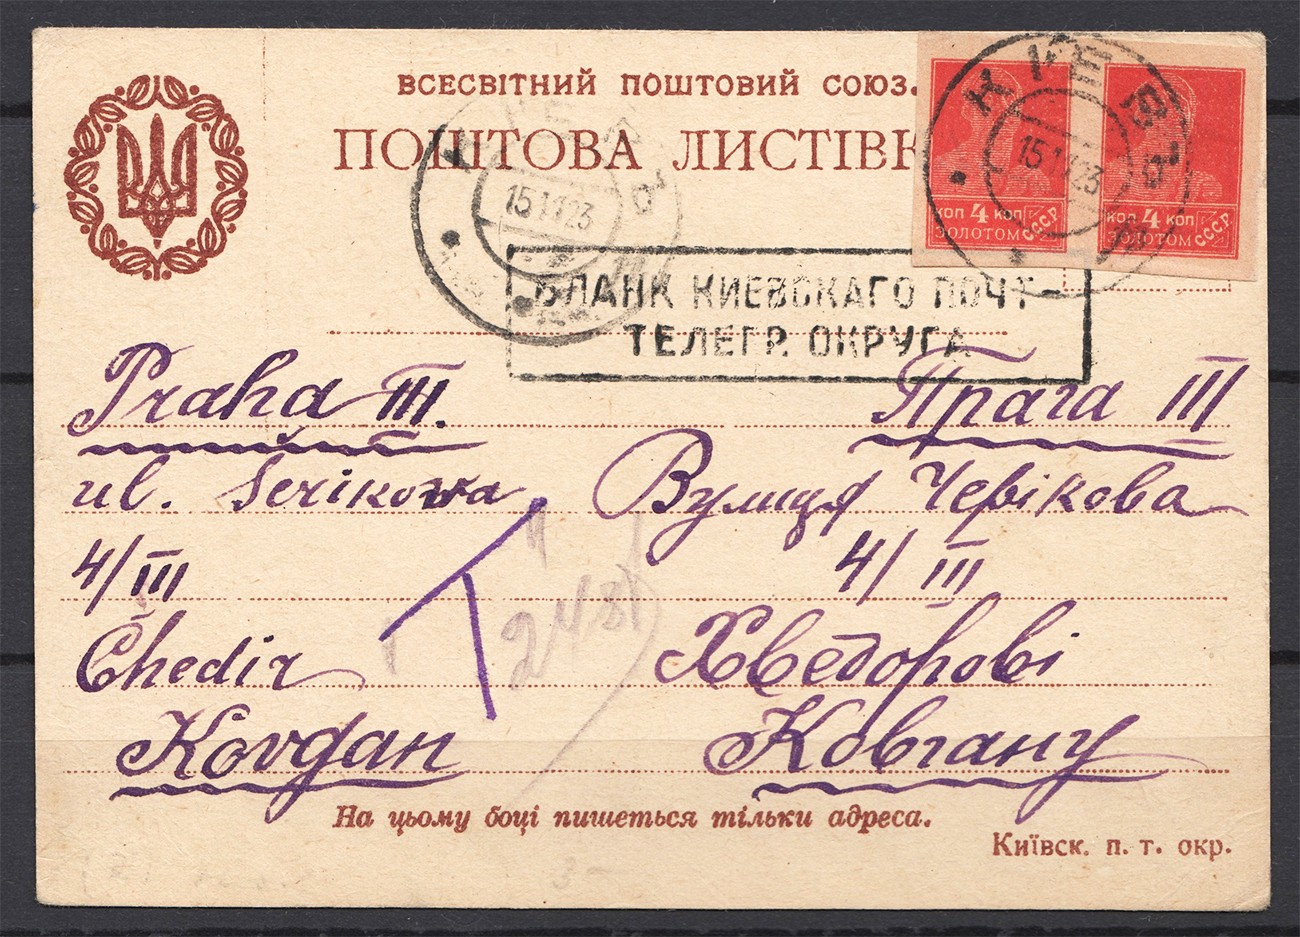 ВСЕСВІТНИЙ ПОШТОВИЙ СОЮЗ.
ПОШТОВА ЛИСТІВК
КИЕВ
15 23
КИЕВ
15 23
КОП 4 КОП
ЗОЛОТОМ
СССР
КОП 4 КОП
ЗОЛОТОМ
СССР
БЛАНК КИЕВСКАГО ПОЧТ-
ТЕЛЕГР. ОКРУГА
Praha III.
Прага III
ul. Serikowa
Вулиця Черікова
4/III
4/III
T
Chedir
Хведорові
Kovgan
Ковгану
На цьому боці пишеться тільки адреса.
Київск. п. т. окр.